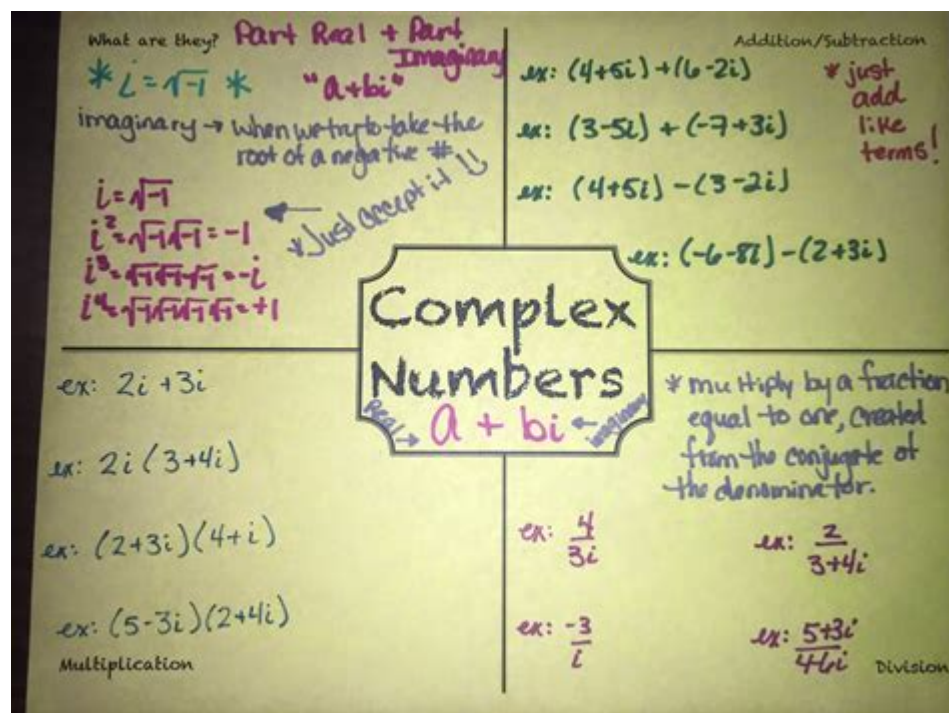 What are they? Part Real + Part
Imaginary
* i = √-1 * "a+bi"
imaginary → when we try to take the
root of a negative #
* Just accept it
i = √-1
i² = √-1√-1 = -1
i³ = √-1√-1√-1 = -i
i⁴ = √-1√-1√-1√-1 = +1
Addition/Subtraction
ex: (4+5i)+(6-2i)
ex: (3-5i) + (-7+3i)
ex: (4+5i) -(3-2i)
ex: (-6-8i)-(2+3i)
* just
add
like
terms!
Complex
Numbers
Real → a + bi ← imaginary
ex: 2i + 3i
ex: 2i (3+4i)
ex: (2+3i)(4+i)
ex: (5-3i)(2+4i)
Multiplication
* multiply by a fraction
equal to one, created
from the conjugate of
the denominator.
ex: 4/3i
ex: 2/3+4i
ex: -3/i
ex: 5+3i/
Division